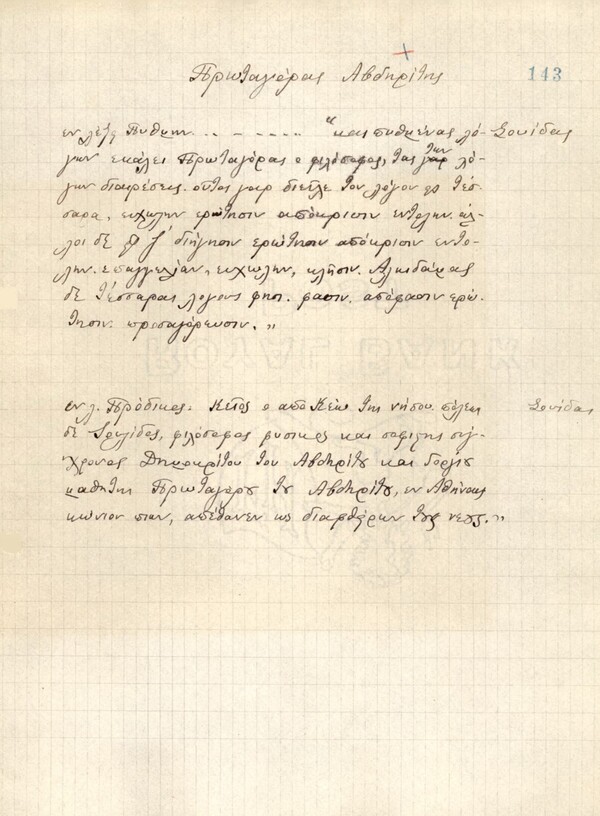 143
Πρωταγόρας Αβδηρίτης
εν λέξη Πυθμην. . - - - - - . . "και πυθμένας λό- Σουίδας
γων εκάλει Πρωταγόρας ο φιλόσοφος, τας των λό-
γων διαιρέσεις. ούτος γαρ διείλε τον λόγον εις τέσ-
σαρα, ευχωλην ερώτησιν απόκρισιν εντολην. άλ-
λοι δε εις ζ' διήγησιν ερώτησιν απόκρισιν εντο-
λην. επαγγελίαν, ευχωλην, κλήσιν. Αλκιδάμας
δε τέσσαρας λόγους φησι. φασιν. απόφασιν ερώ-
τησιν. προσαγόρευσιν. „
ROYAL BANK
εν λ. Πρόδικος. Κείος ο από Κέω της νήσου πόλεως Σουίδας
δε Ιουλίδος, φιλόσοφος φυσικος και σοφιστης σύγ-
χρονος Δημοκρίτου του Αβδηρίτου και Γοργίου
μαθητης Πρωταγόρου του Αβδηρίτου, εν Αθήναις
κώνιον πιων, απέθανεν ως διαφθείρων τους νέους. „